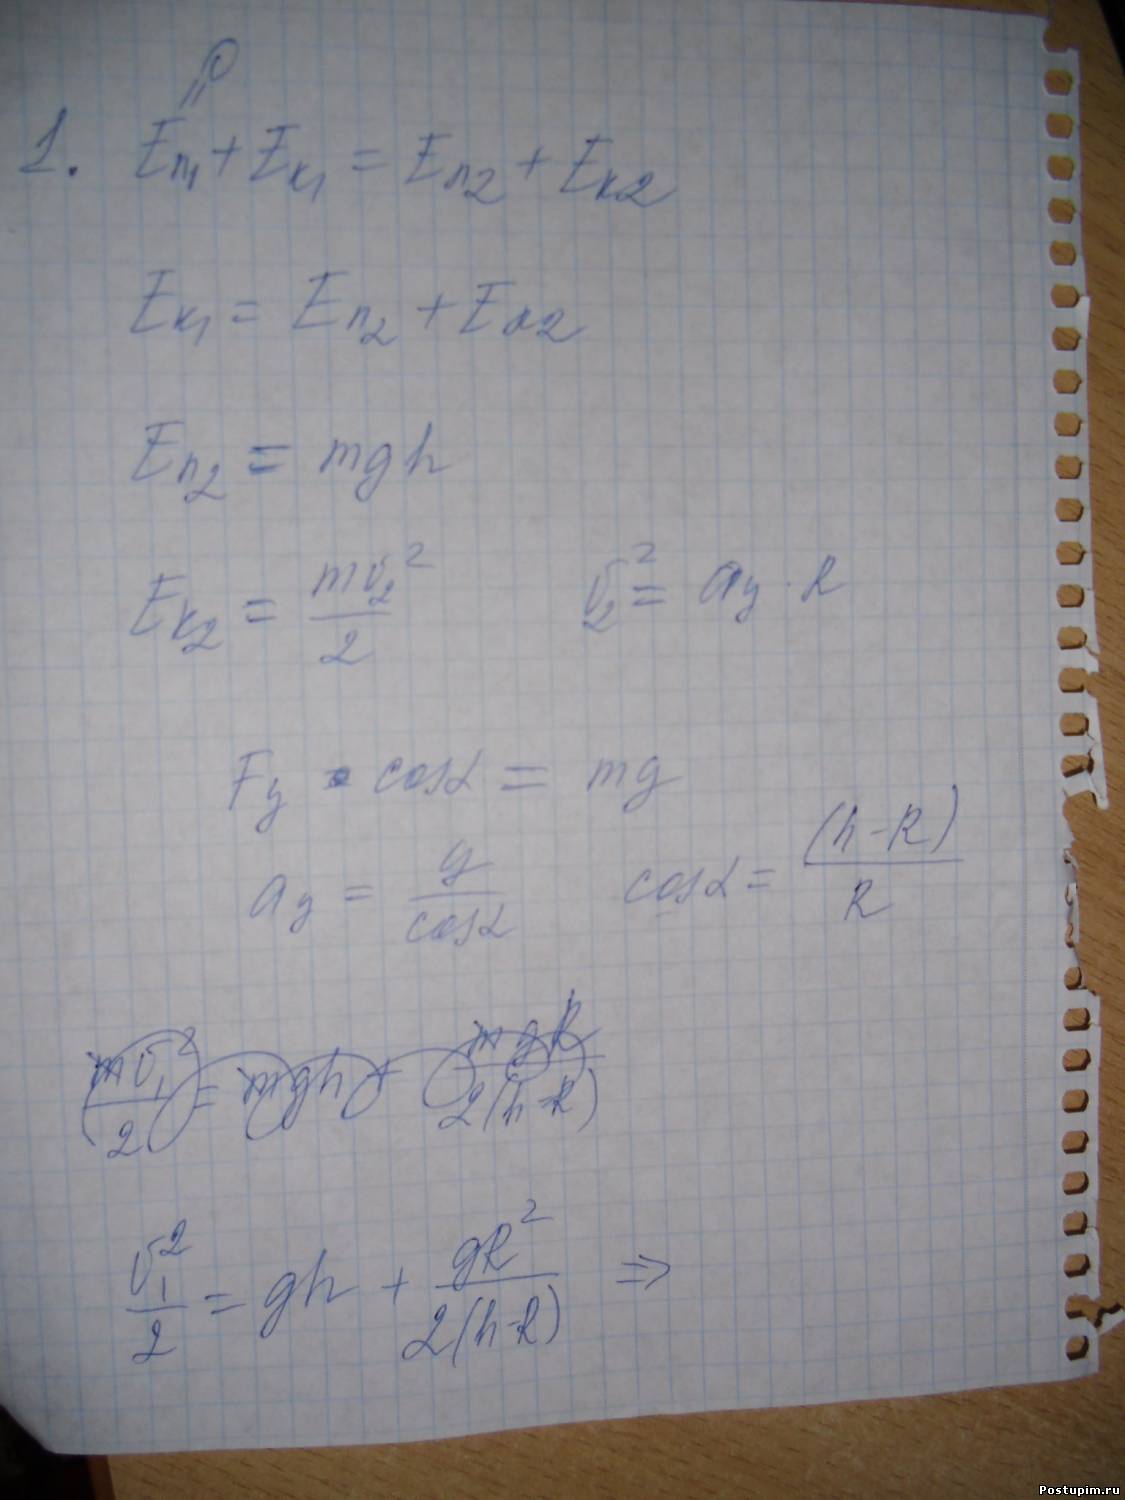 0
1. Eп₁ + Eк₁ = Eп₂ + Eк₂
Eк₁ = Eп₂ + Eк₂
Eп₂ = mgh
Eк₂ = mv₂²/2    v₂² = ay · R
Fy · cosα = mg
ay = g/cosα    cosα = (h-R)/R
mv₁²/2 = mgh + mgR/2(h-R)
v₁²/2 = gh + gR²/2(h-R) ⇒
Postupim.ru